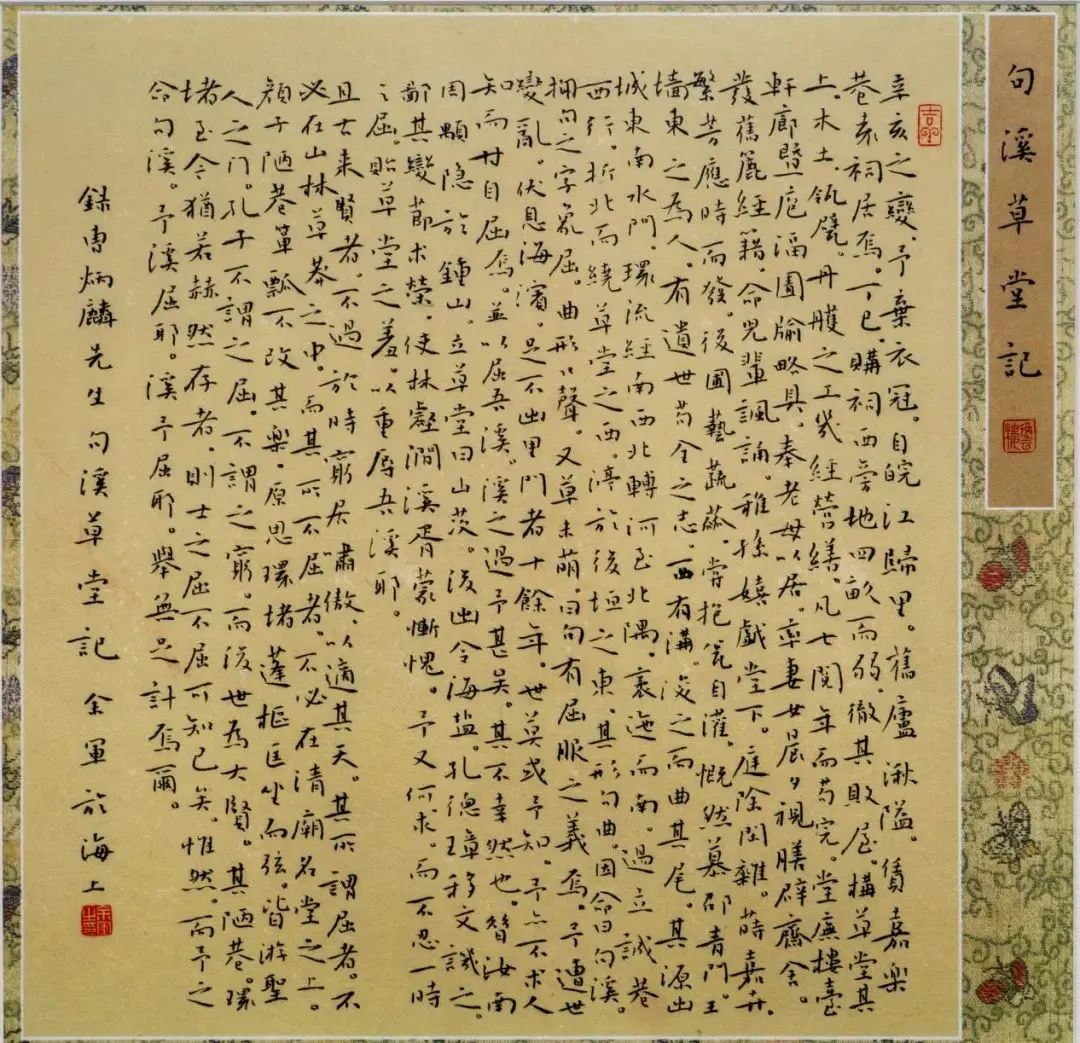 句溪草堂記
辛亥之變。予棄衣冠。自皖江歸里。舊廬湫隘。賃嘉樂
巷袁祠居焉。丁巳。購祠西旁地四畝而弱。徹其敗屋。構草堂其
上。木土。瓴甓。丹雘之工。幾經營繕。凡七閱年而苟完。堂廡樓臺
軒廊暨庖湢圊牏略具。奉老母以居。率妻女晨夕視膳。辟齋舍。
發舊簏經籍。命兒輩諷誦。稚孫嬉戲堂下。庭除閒雜。蒔嘉卉。
繁芳應時而發。後圃藝蔬蓏。嘗抱瓮自灌。慨然慕邵青門。王
墻東之為人。有遺世苟全之志。西有溝。浚之而曲其尾。其源出
城東南水門。環流經南西北轉河至北隅。裏迤而南。過立誠巷
西行。折北而繞草堂之西。渟於後垣之東。其形句曲。因命曰句溪。
拥句之字象屈。曲形丩聲。又草木萌。曰句有屈服之義焉。予遭世
變亂。伏息海濱。足不出里門者十餘年。世莫或予知。予亦不求人
知。而甘自屈焉。並以屈吾溪。溪之過予甚矣。其不幸然也。昔汝南
周顒隱於鍾山。立草堂曰山茨。後出令海盐。孔德璋移文譏之。
鄙其變節求榮。使林壑澗溪胥蒙慚愧。予又何求。而不忍一時
之屈。貽草堂之羞。以重辱吾溪耶。
且士来賢者。不過於時窮居嘯傲。以適其天。其所謂屈者。不
必在山林草莽之中。而其所不屈者。不必在清廟名堂之上。
顏子陋巷簞瓢不改其樂。原思環堵蓬樞匡坐而弦。皆游聖
人之門。孔子不謂之屈。不謂之窮。而後世為大賢。其陋巷。環
堵至今猶若赫然存者。則士之屈不屈可知已矣。惟然。而予之
命句溪。予溪屈耶。溪予屈耶。舉無足計焉爾。
錄曹炳麟先生句溪草堂記 余軍於海上